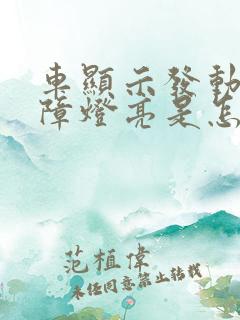 車顯示發動
障燈亮是怎
范植偉
未經同意禁止轉載